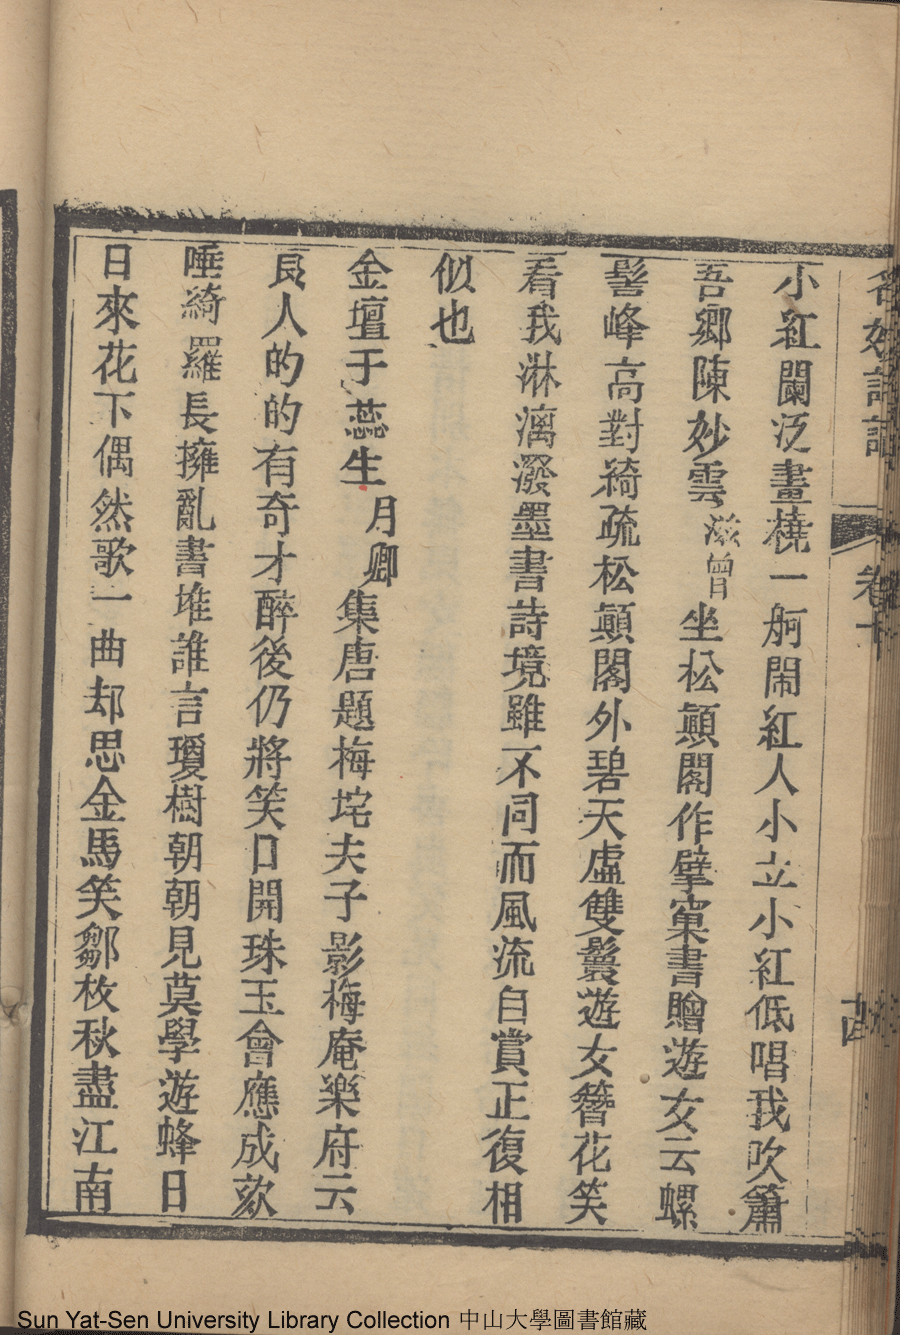 卷十
小紅闌泛畫橈一舸鬧紅人小立小紅低唱我吹簫
吾鄉陳妙雲滋曾坐松顛閣作擘窠書贈遊女云螺
髻峰高對綺疏松顛閣外碧天虛雙鬟遊女簪花笑
看我淋漓潑墨書詩境雖不同而風流自賞正復相
似也
金壇于蕊生月卿集唐題梅垞夫子影梅庵樂府云
良人的的有奇才醉後仍將笑口開珠玉會應成欬
唾綺羅長擁亂書堆誰言瓊樹朝朝見莫學遊蜂日
日來花下偶然歌一曲却思金馬笑鄒枚秋盡江南
Sun Yat-Sen University Library Collection 中山大學圖書館藏